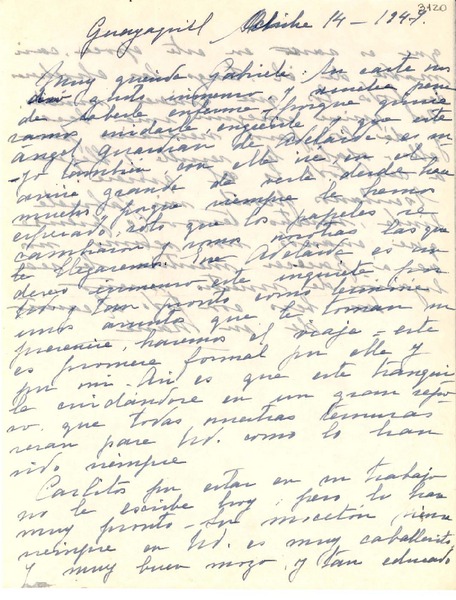 3120
Guayaquil 14 - 1947.
Muy querida Gabriela: Su carta nos
dió gusto inmenso y mucha pena
de saberla enferma porque quisié
ramos cuidarla enseguida y que este
ángel guardian de Adelaida es mí
yo también con ella iré en el
ansia grande de verla desde hace
mucho y porque siempre la hemos
esperado, solo que los papeles se
cambiaron y somos nosotras las que
llegaremos. Adelaida es un
deseo inmenso este inquieta por
Ud. y tan pronto como termine
unos asuntos que le toman su
presencia, haremos el viaje - este
es promesa formal por ella y
por mi. Así es que este tranqui
la cuidándose en un gran repo
so. que todas nuestras ternuras
seran para Ud. como lo han
sido siempre
Carlitos por estar en su trabajo
no le escribe hoy, pero lo hara
muy pronto - Su mocetón piensa
siempre en Ud. es muy caballerito
y muy buen mozo y tan educado